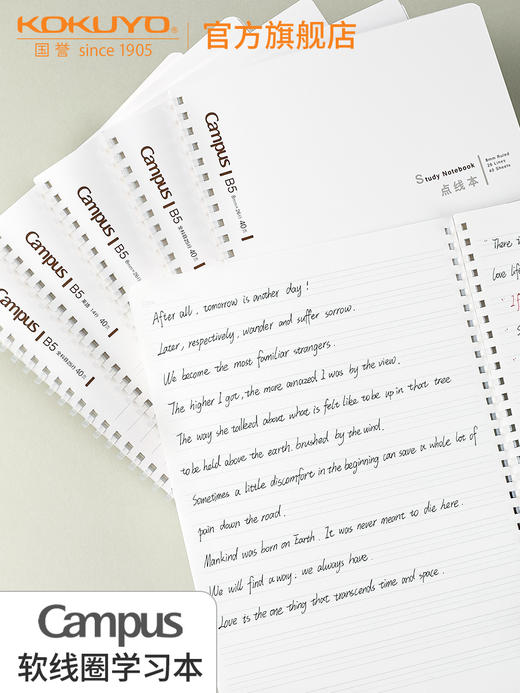 KOKUYO®
国誉 since 1905
官方旗舰店
Campus B5
Campus B5
Campus B5
Campus B5
Campus B5
Study Notebook
点线本
8mm Ruled
40 Sheets
After all, tomorrow is another day!
Later, respectively, wander and suffer sorrow.
We become the most familiar strangers.
The higher I got, the more amazed I was by the view.
The way she talked about what is felt like to be up in that tree
to be held above the earth. brushed by the wind.
Sometimes a little discomfort in the beginning can save a whole lot of
pain down the road.
Mankind was born on Earth. It was never meant to die here.
We will find a way. we always have.
Love is the one thing that transcends time and space.
There i
love life
Campus
软线圈学习本